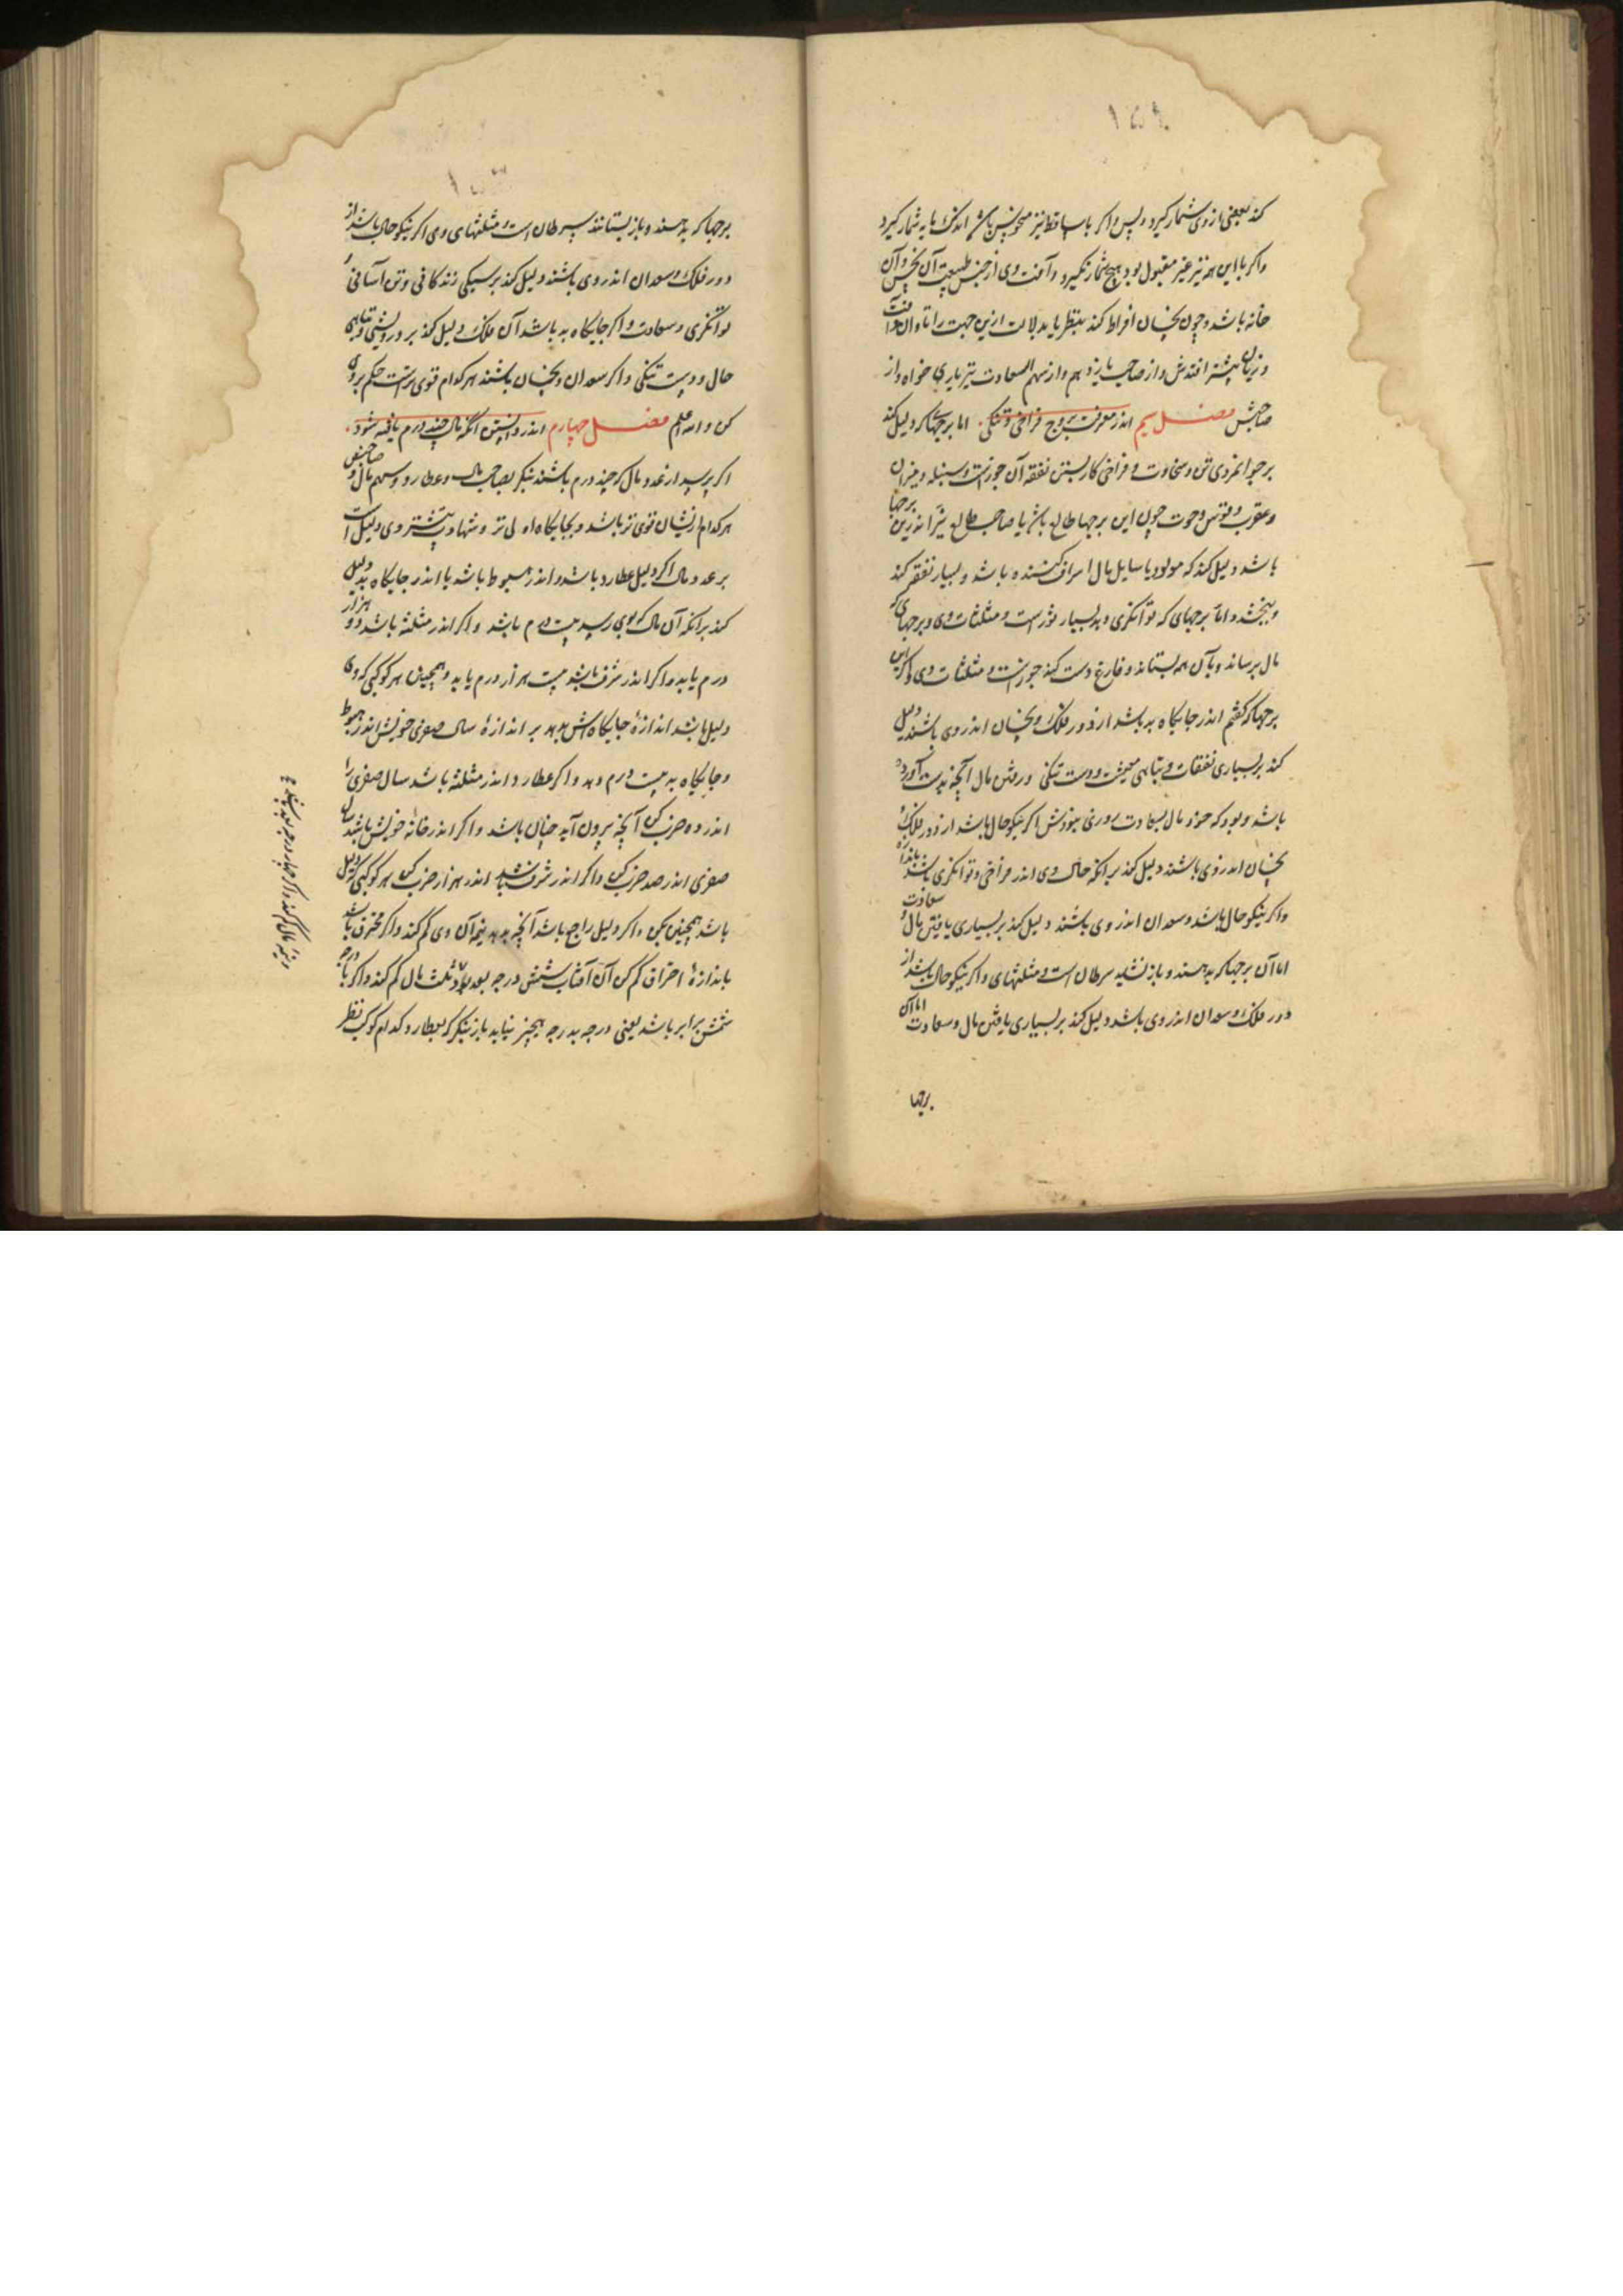 کند بعضی از وی شمار گیرد و پس واگر باساقط نیز منحوس باشد اندک مایه شمار گیرد
واگر با این همه نیز غیر مقبول بود هیچ شمار نگیرد وآفت وی از جنس طبیعت آن نحس وآن
خانه باشد وچون نحسان افراط کند بنظر یا بدلالت ازین جهت را تاوان
وزیان بیشتر افتدش واز صاحب یازدهم واز سهم السعادت نیز یاری خواه واز
صاحبش فصل سیم اندر معرفت بروج فراخی وتنگی اما برجها که دلیل کند
بر جوانمردی تن وسخاوت وفراخی کار بستن نفقه آن جوزاست وسنبله ومیزان
وعقرب وقوس وحوت چون این برجها طالع باشد یا صاحب طالع اندرین برجها
باشد دلیل کند که مولود یا سایل مال اسراف کننده باشد وبسیار نفقه کند
وببخشد واما برجهای که توانگری وبد بسیار ثورست ومثلثات وی وبرجهای که
مال برساند وبآن هم بستاند وفارغ دست کند جوزاست ومثلثات وی واگر این
برجها که گفتم اندر جایگاه بد باشد از دور فلک ونحسان اندر وی باشند دلیل
کند بر بسیاری نفقات وتباهی معیشت ودست تنگی ورفتن مال آنچه بدست آورده
باشد وبود که خود مال بسعادت روزی نبودش اگر نیکو حال باشد از دور فلک و
نحسان اندر وی باشند دلیل کند برانکه حال وی اندر فراخی وتوانگری باندازه باشد
واگر نیکو حال باشد وسعدان اندر وی باشند دلیل کند بر بسیاری یافتن مال وسعادت
اما آن برجها که بدهند وباز نستانند سرطان است ومثلثهای واگر نیکو حال باشد از
دور فلک وسعدان اندر وی باشد دلیل کند بر بسیاری یافتن مال وسعادت اما آن
برجها
برجها که بدهند وباز بستانند سرطان است ومثلثهای وی اگر نیکو حال باشد از
دور فلک وسعدان اندر وی باشند دلیل کند بر نیکی زندگانی وتن آسانی و
توانگری وسعادت واگر جایگاه بد باشد آن فلک دلیل کند بر درویشی وتباهی
حال ودست تنگی واگر سعدان ونحسان باشند هر کدام قوی ترست حکم بر وی
کن والله اعلم فصل چهارم اندر دانستن آنکه مال چند درم یافته شود
اگر پرسد از عدد مال که چند درم باشند بنگر بصاحب مال وعطارد وسهم مال وصاحبش
هر کدام ازیشان قوی تر باشد وبجایگاه اولی تر وشهادت بیشتر وی دلیل است
بر عدد مال اگر دلیل عطارد باشد واندر هبوط باشد یا اندر جایگاه بد دلیل
کند برانکه آن مال که بوی رسد بیست درم باشد واگر اندر مثلثه باشد دو هزار
درم یابد واگر اندر شرف باشد بیست هزار درم یابد وهمچنین هر کوکبی که وی
دلیل باشد اندازهٔ جایگاهش بدهد بر اندازهٔ سال صغری خویش اندر هبوط
وجایگاه بد بیست درم دهد واگر عطارد اندر مثلثه باشد سال صغری را
اندر ده ضرب کن آنچه بیرون آید چنان باشد واگر اندر خانهٔ خویش باشد سال
صغری اندر صد ضرب کن واگر اندر شرف باشد اندر هزار ضرب کن هر کوکبی که دلیل
باشد همچنین بکن واگر دلیل راجع باشد آنچه بدهد نیمه آن وی کم کند واگر محترق باشد
باندازهٔ احتراق کم کن آن آفتاب شش درجه بعد بود ثلث مال کم کند واگر با درجه
شمس برابر باشد یعنی درجه بدرجه هیچیز نیابد باز بنگر که بعطارد کدام کوکب نظر